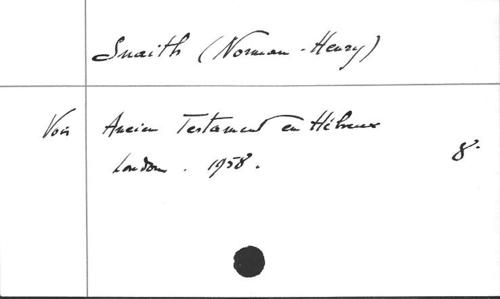 Snaith (Norman-Henry)
Voir Ancien Testament en Hébreux
London. 1958. 8°